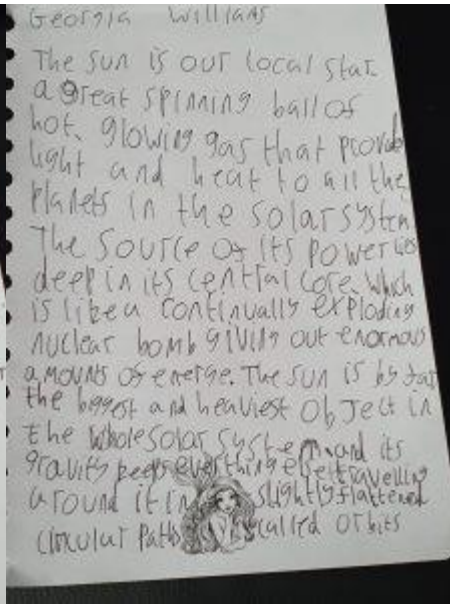 Georgia Williams
The sun is our local star.
a great spinning ball of
hot, glowing gas that provide
light and heat to all the
Planets in the solar system
The source of its power lies
deep in its central core. Which
is like a continually exploding
nuclear bomb giving out enormous
amounts of energe. The sun is by far
the biggest and heaviest object in
the whole solar system. and its
gravity keeps everything else travelling
around it in slightly flattened
circular path called orbits